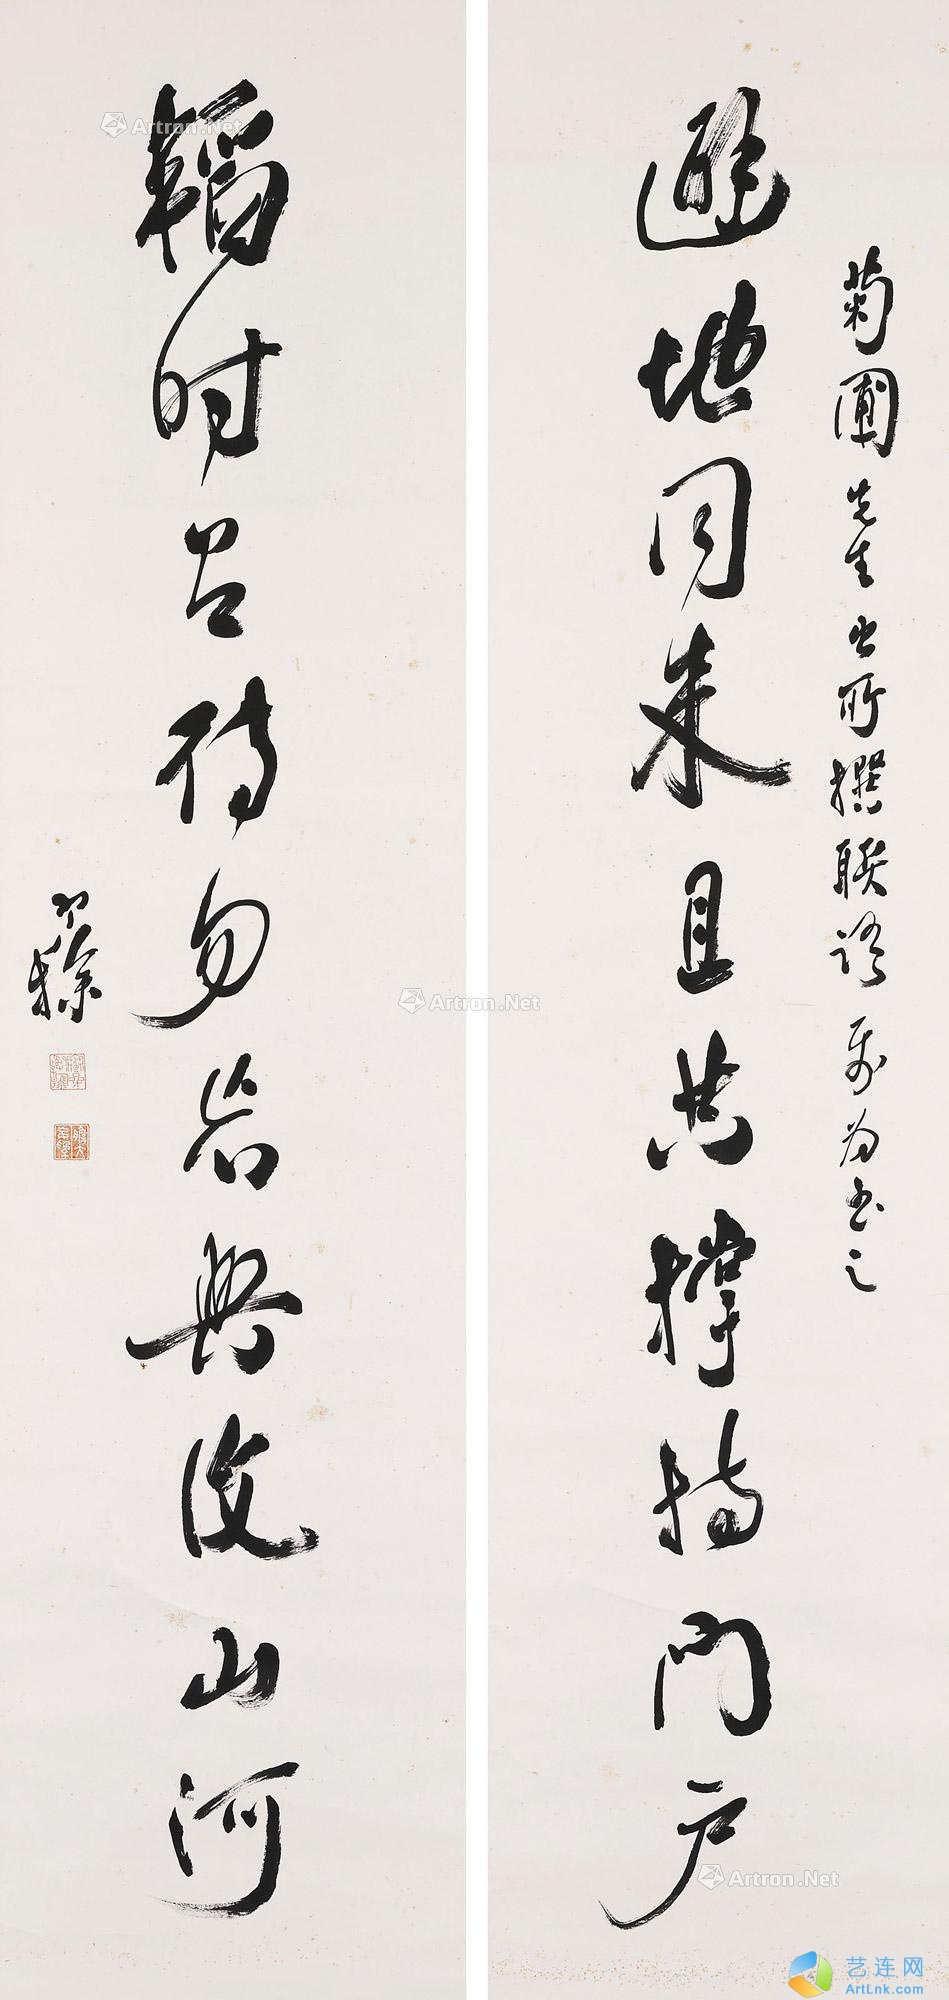 菊圃先生出所撰聯語屬為書之
避地同来且共撐持門户
韜时㠯待勿興復山河
Artron.Net
Artron.Net
Artron.Net
艺连网
ArtLnk.com